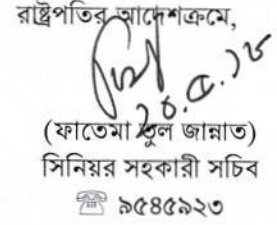 রাষ্ট্রপতির আদেশক্রমে,
২০.৫.১৮
(ফাতেমা তুল জান্নাত)
সিনিয়র সহকারী সচিব
☏ ৯৫৪৫৯২৩